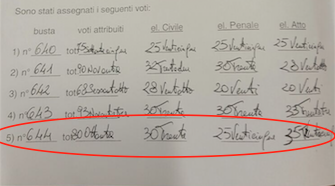 Sono stati assegnati i seguenti voti:
busta voti attribuiti el. Civile el. Penale el. Atto
1) n° 640 tot 75 settantacinque 25 Venticinque 25 Venticinque 25 Venticinque
2) n° 641 tot 90 Novanta 32 Trentadue 30 Trenta 28 Ventotto
3) n° 642 tot 68 Sessantotto 28 Ventotto 20 Venti 20 Venti
4) n° 643 tot 95 Novantacinque 30 Trenta 30 Trenta 35
5) n° 644 tot 80 Ottanta 30 Trenta 25 Venticinque